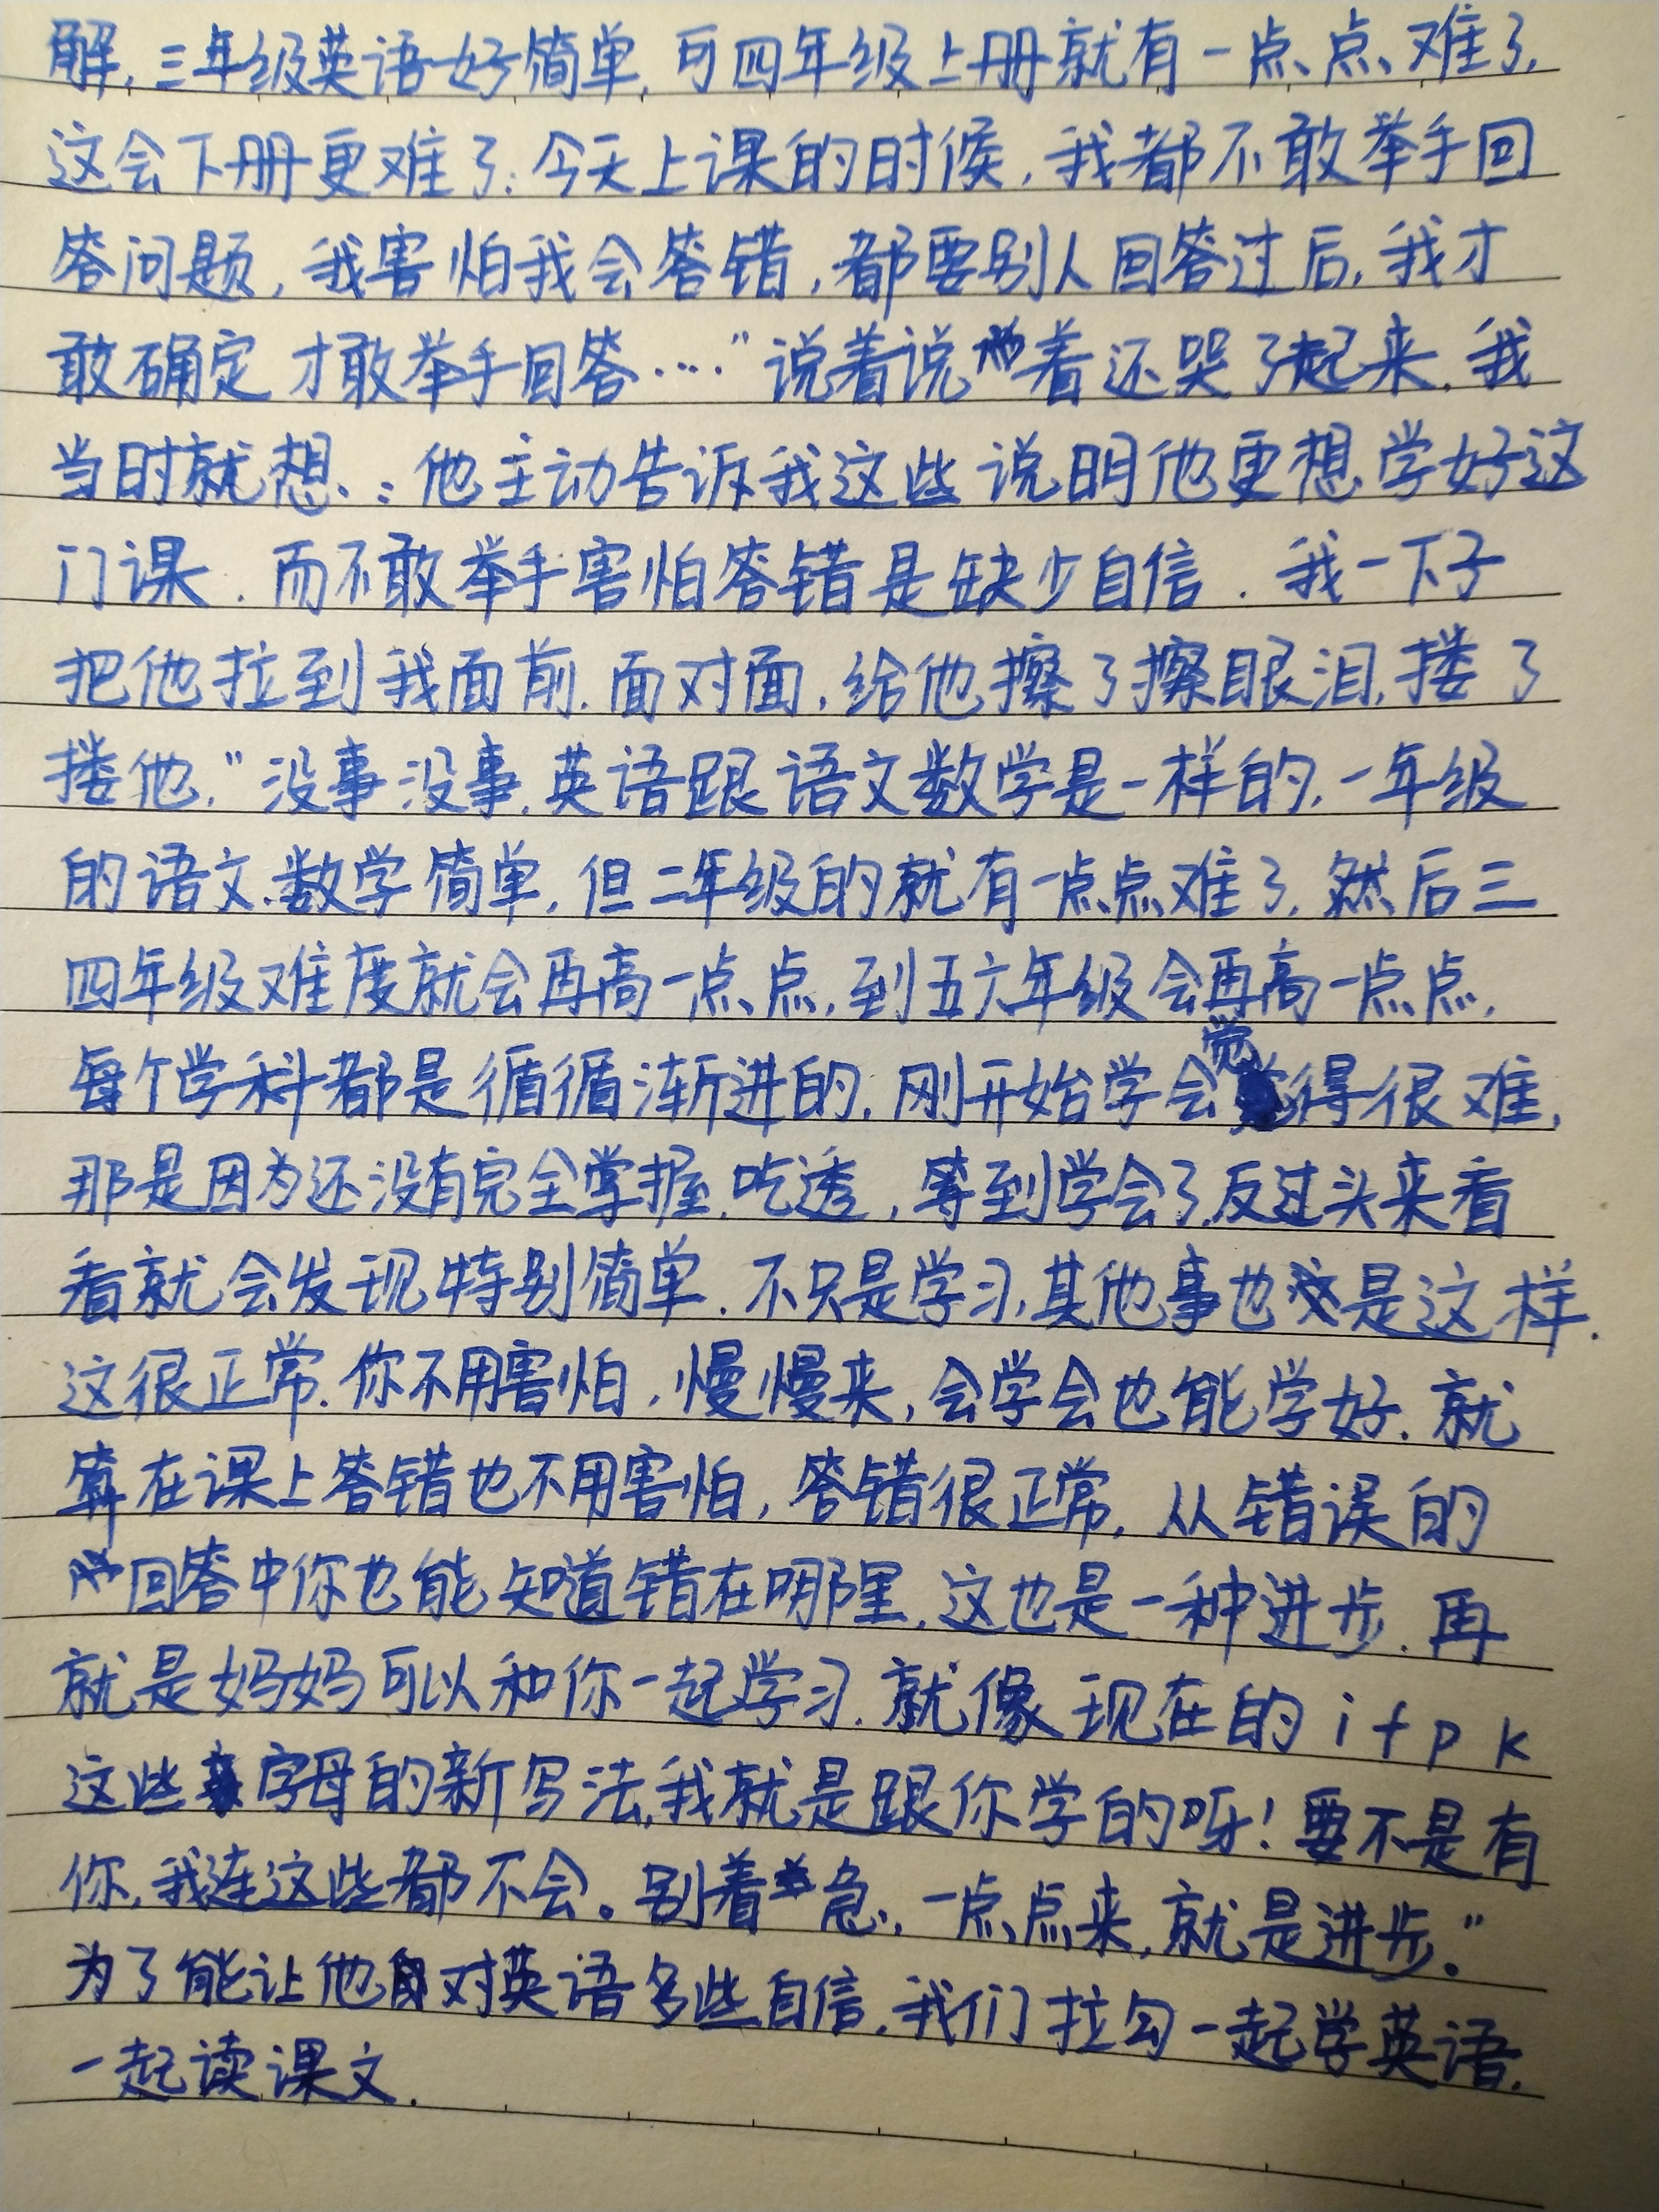 解,三年级英语好简单,可四年级上册就有一点点难了,
这会下册更难了.今天上课的时候,我都不敢举手回
答问题,我害怕我会答错,都要别人回答过后,我才
敢确定才敢举手回答……"说着说着还哭了起来.我
当时就想:他主动告诉我这些说明他更想学好这
门课.而不敢举手害怕答错是缺少自信.我一下子
把他拉到我面前.面对面,给他擦了擦眼泪,搂了
搂他,"没事没事,英语跟语文数学是一样的,一年级
的语文数学简单,但二年级的就有一点点难了,然后三
四年级难度就会再高一点点,到五六年级会再高一点点,
每个学科都是循循渐进的.刚开始学会觉得很难,
那是因为还没有完全掌握.吃透,等到学会了,反过头来看
看就会发现特别简单.不只是学习,其他事也是这样.
这很正常.你不用害怕,慢慢来,会学会也能学好.就
算在课上答错也不用害怕,答错很正常,从错误的
回答中你也能知道错在哪里,这也是一种进步.再
就是妈妈可以和你一起学习.就像现在的 i t p k
这些字母的新写法,我就是跟你学的呀!要不是有
你,我连这些都不会。别着急,一点点来,就是进步。"
为了能让他对英语多些自信,我们拉勾一起学英语.
一起读课文.